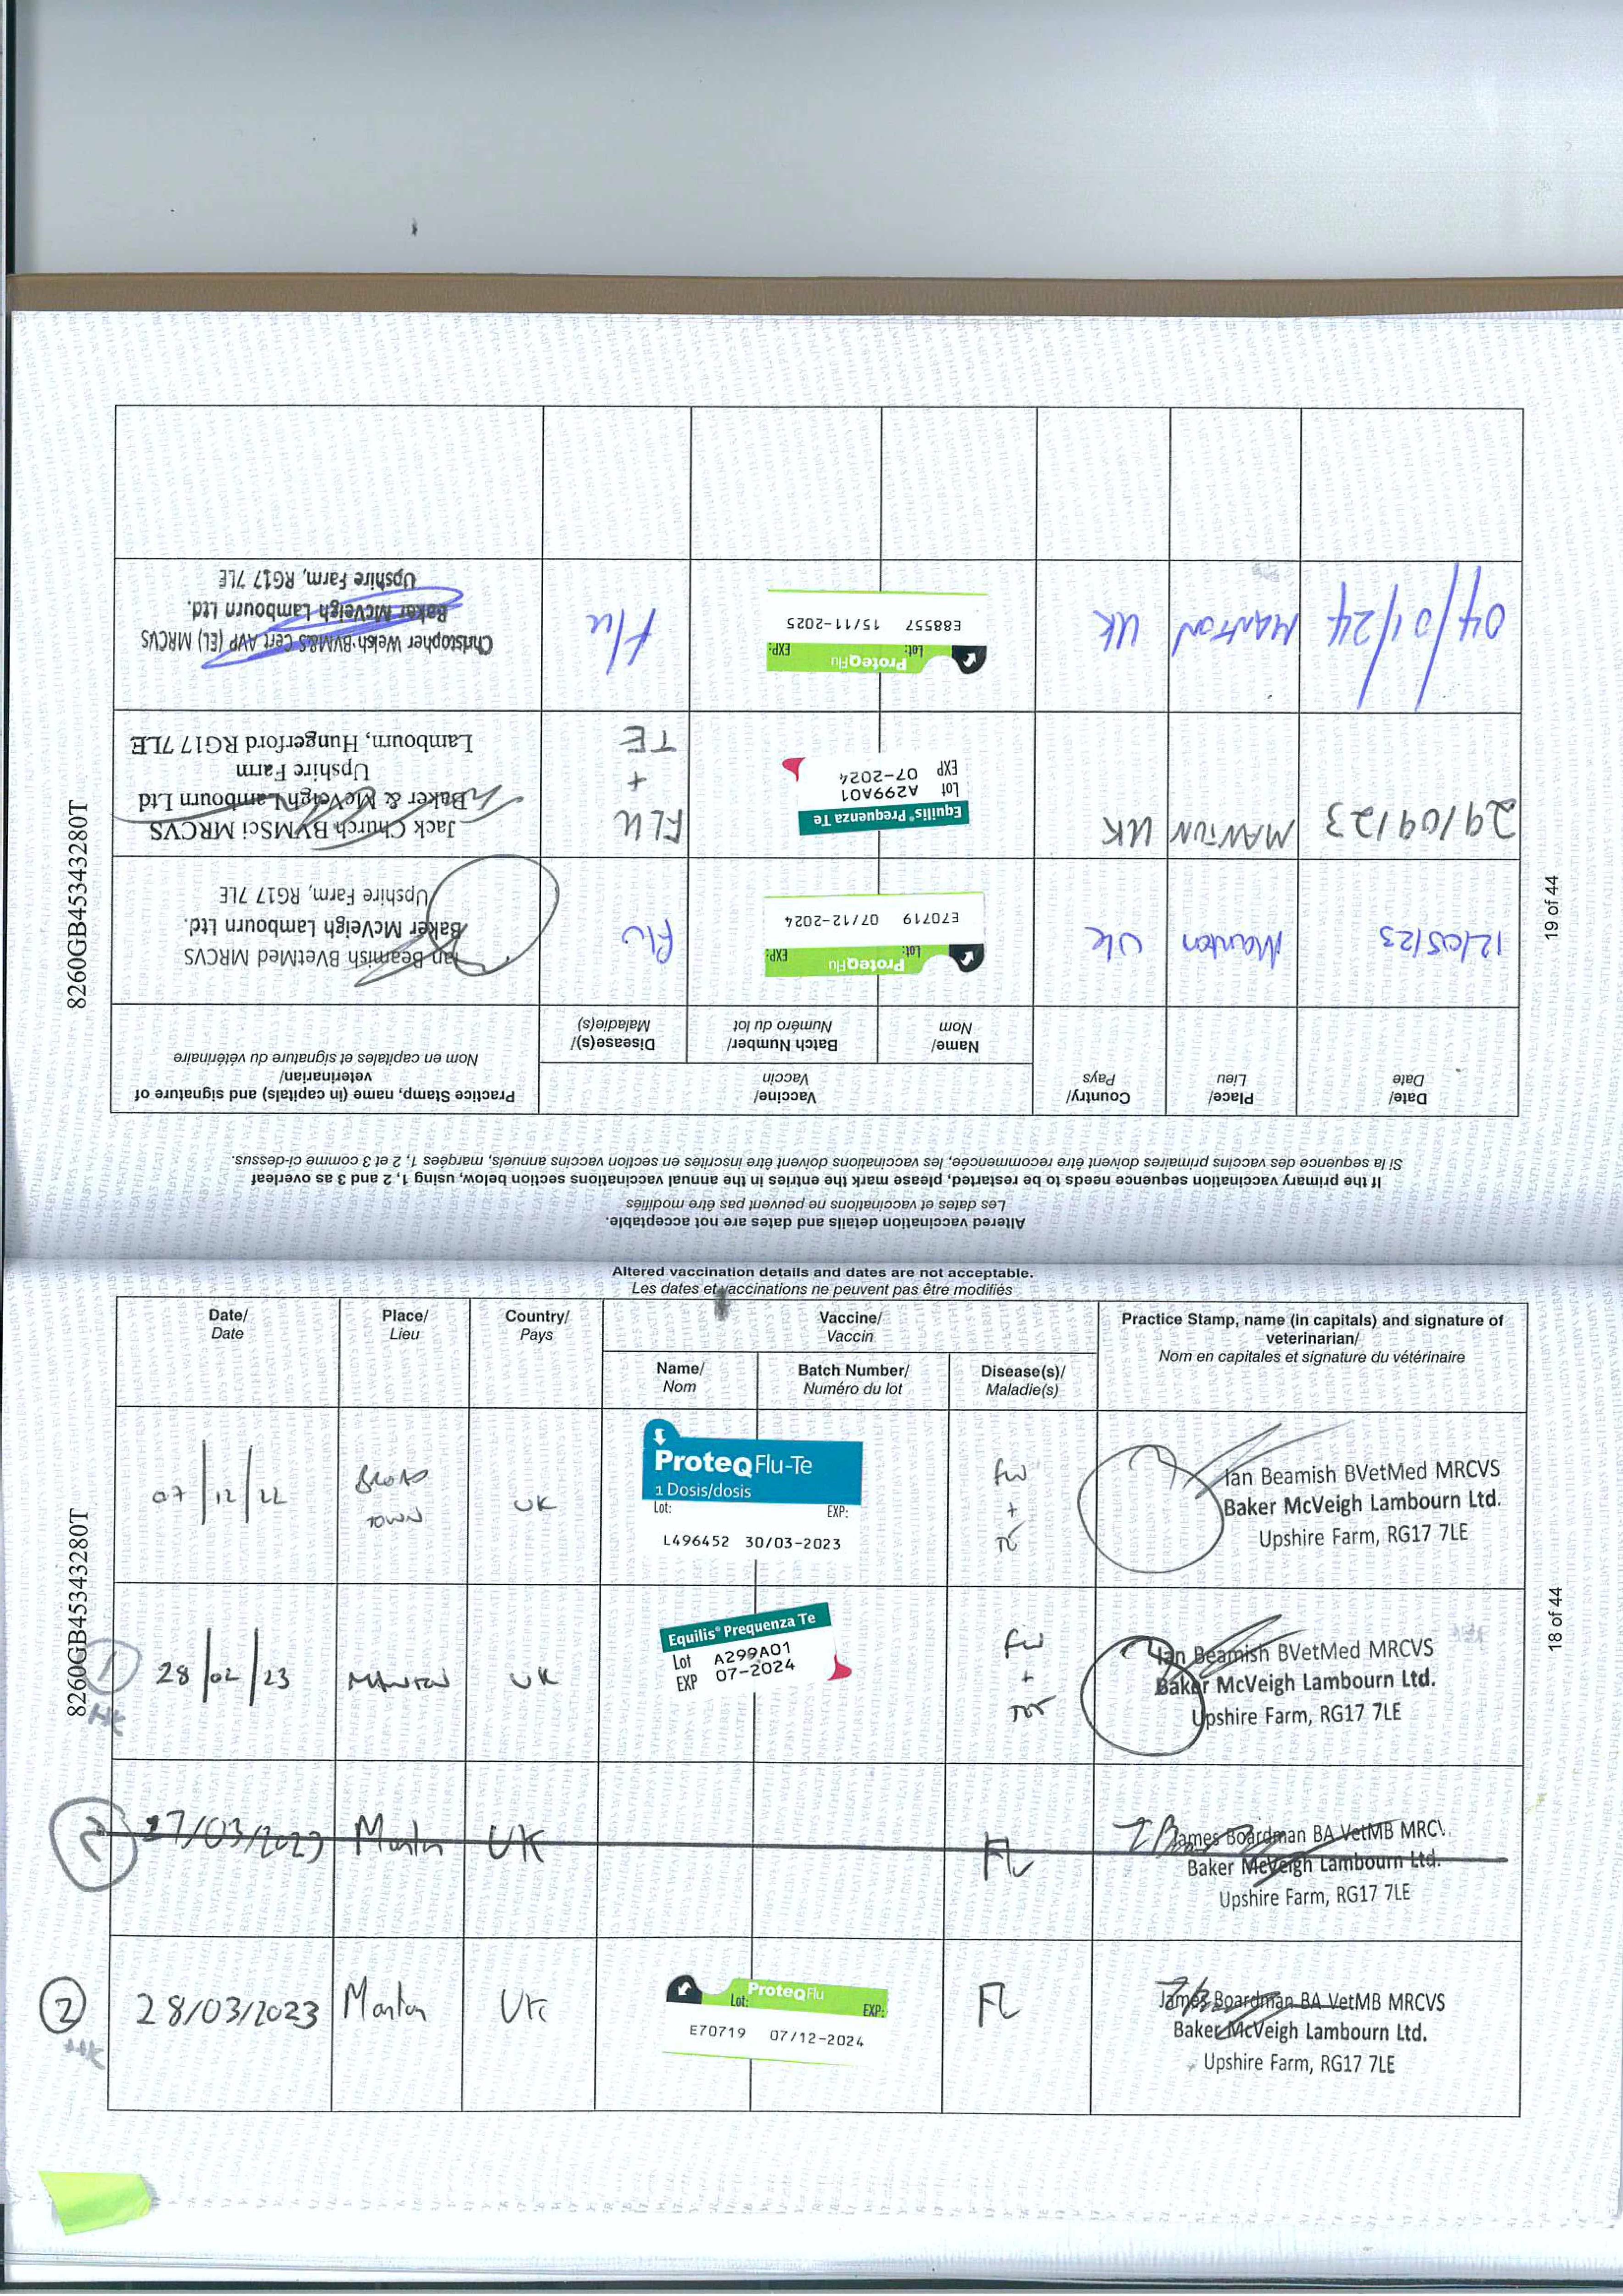 8260GB45343280T
18 of 44
Altered vaccination details and dates are not acceptable.
Les dates et vaccinations ne peuvent pas être modifiés
Date/
Date
Place/
Lieu
Country/
Pays
Vaccine/
Vaccin
Name/
Nom
Batch Number/
Numéro du lot
Disease(s)/
Maladie(s)
Practice Stamp, name (in capitals) and signature of
veterinarian/
Nom en capitales et signature du vétérinaire
07/12/22
BROAD
TOWN
UK
ProteqFlu-Te
1 Dosis/dosis
Lot: EXP:
L496452 30/03-2023
+
Ian Beamish BVetMed MRCVS
Baker McVeigh Lambourn Ltd.
Upshire Farm, RG17 7LE
1
28/02/23
MANTON
UK
Equilis® Prequenza Te
Lot A299A01
EXP 07-2024
+
Ian Beamish BVetMed MRCVS
Baker McVeigh Lambourn Ltd.
Upshire Farm, RG17 7LE
2
27/03/2023
Manton
UK
FL
James Boardman BA VetMB MRCV
Baker McVeigh Lambourn Ltd.
Upshire Farm, RG17 7LE
2
28/03/2023
Manton
UK
ProteqFlu
Lot: EXP:
E70719 07/12-2024
FL
James Boardman BA VetMB MRCVS
Baker McVeigh Lambourn Ltd.
Upshire Farm, RG17 7LE
8260GB45343280T
19 of 44
Altered vaccination details and dates are not acceptable.
Les dates et vaccinations ne peuvent pas être modifiés
If the primary vaccination sequence needs to be restarted, please mark the entries in the annual vaccinations section below, using 1, 2 and 3 as overleaf
Si la sequence des vaccins primaires doivent être recommencée, les vaccinations doivent être inscrites en section vaccins annuels, margées 1, 2 et 3 comme ci-dessus.
Date/
Date
Place/
Lieu
Country/
Pays
Vaccine/
Vaccin
Name/
Nom
Batch Number/
Numéro du lot
Disease(s)/
Maladie(s)
Practice Stamp, name (in capitals) and signature of
veterinarian/
Nom en capitales et signature du vétérinaire
12/05/23
Manton
UK
ProteqFlu
Lot: EXP:
E70719 07/12-2024
Flu
Ian Beamish BVetMed MRCVS
Baker McVeigh Lambourn Ltd.
Upshire Farm, RG17 7LE
29/09/23
MANTON
UK
Equilis® Prequenza Te
Lot A299A01
EXP 07-2024
FLU
+
TE
Jack Church BVMSci MRCVS
Baker & McVeigh Lambourn Ltd
Upshire Farm
Lambourn, Hungerford RG17 7LE
04/01/24
MANTON
UK
ProteqFlu
Lot: EXP:
E88557 15/11-2025
Flu
Christopher Welsh BVM&S Cert AVP (EL) MRCVS
Baker McVeigh Lambourn Ltd.
Upshire Farm, RG17 7LE